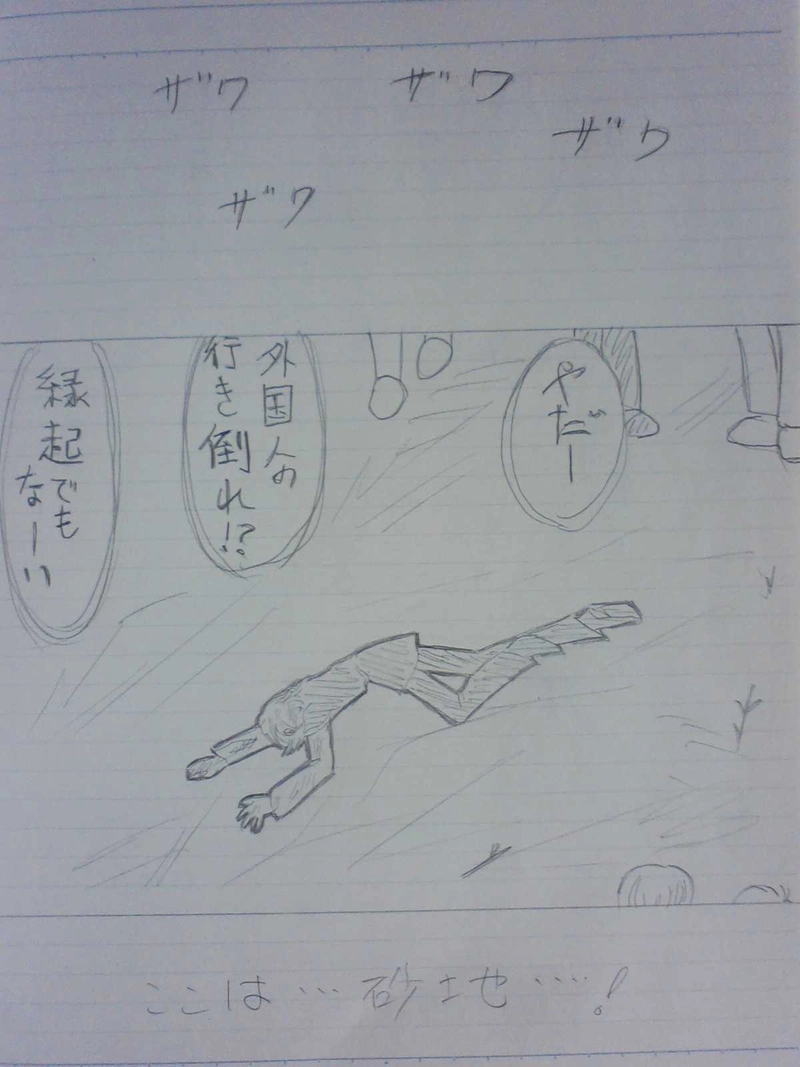 ザワ
ザワ
ザワ
ザワ
やだー
外国人の
行き倒れ!?
縁起でも
なーい
ここは…砂地…!